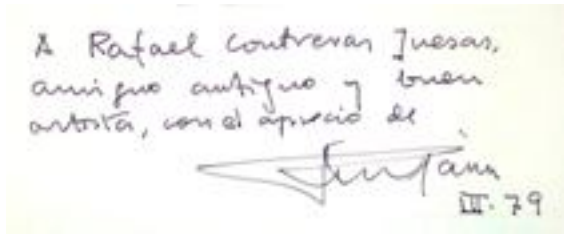 A Rafael Contreras Juesas,
amigo antiguo y buen
artista, con el aprecio de
III. 79